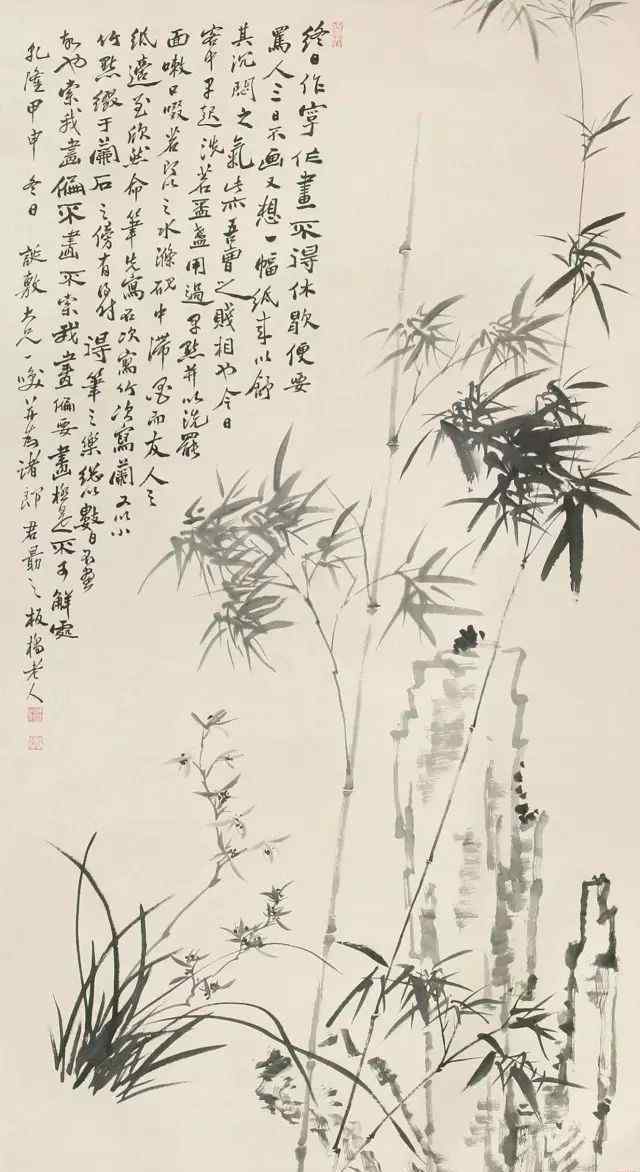 終日作字作畫不得休歇便要
罵人三日不画又想一幅紙來以舒
其沉悶之氣此亦吾曹之賤相也今日
客中早起洗茗盂盞用過早點并以洗罷
面嗽口啜茗之水滌硯中滯墨而友人之
紙適至欣然命筆先寫石次寫竹次寫蘭又以小
竹點綴于蘭石之傍有得時得筆之樂總以數日不畫
故也索我畫偏不畫不索我畫偏要畫極是不可解處
乾隆甲申冬日 誕敷大兄一笑并為諸郎君勖之 板橋老人